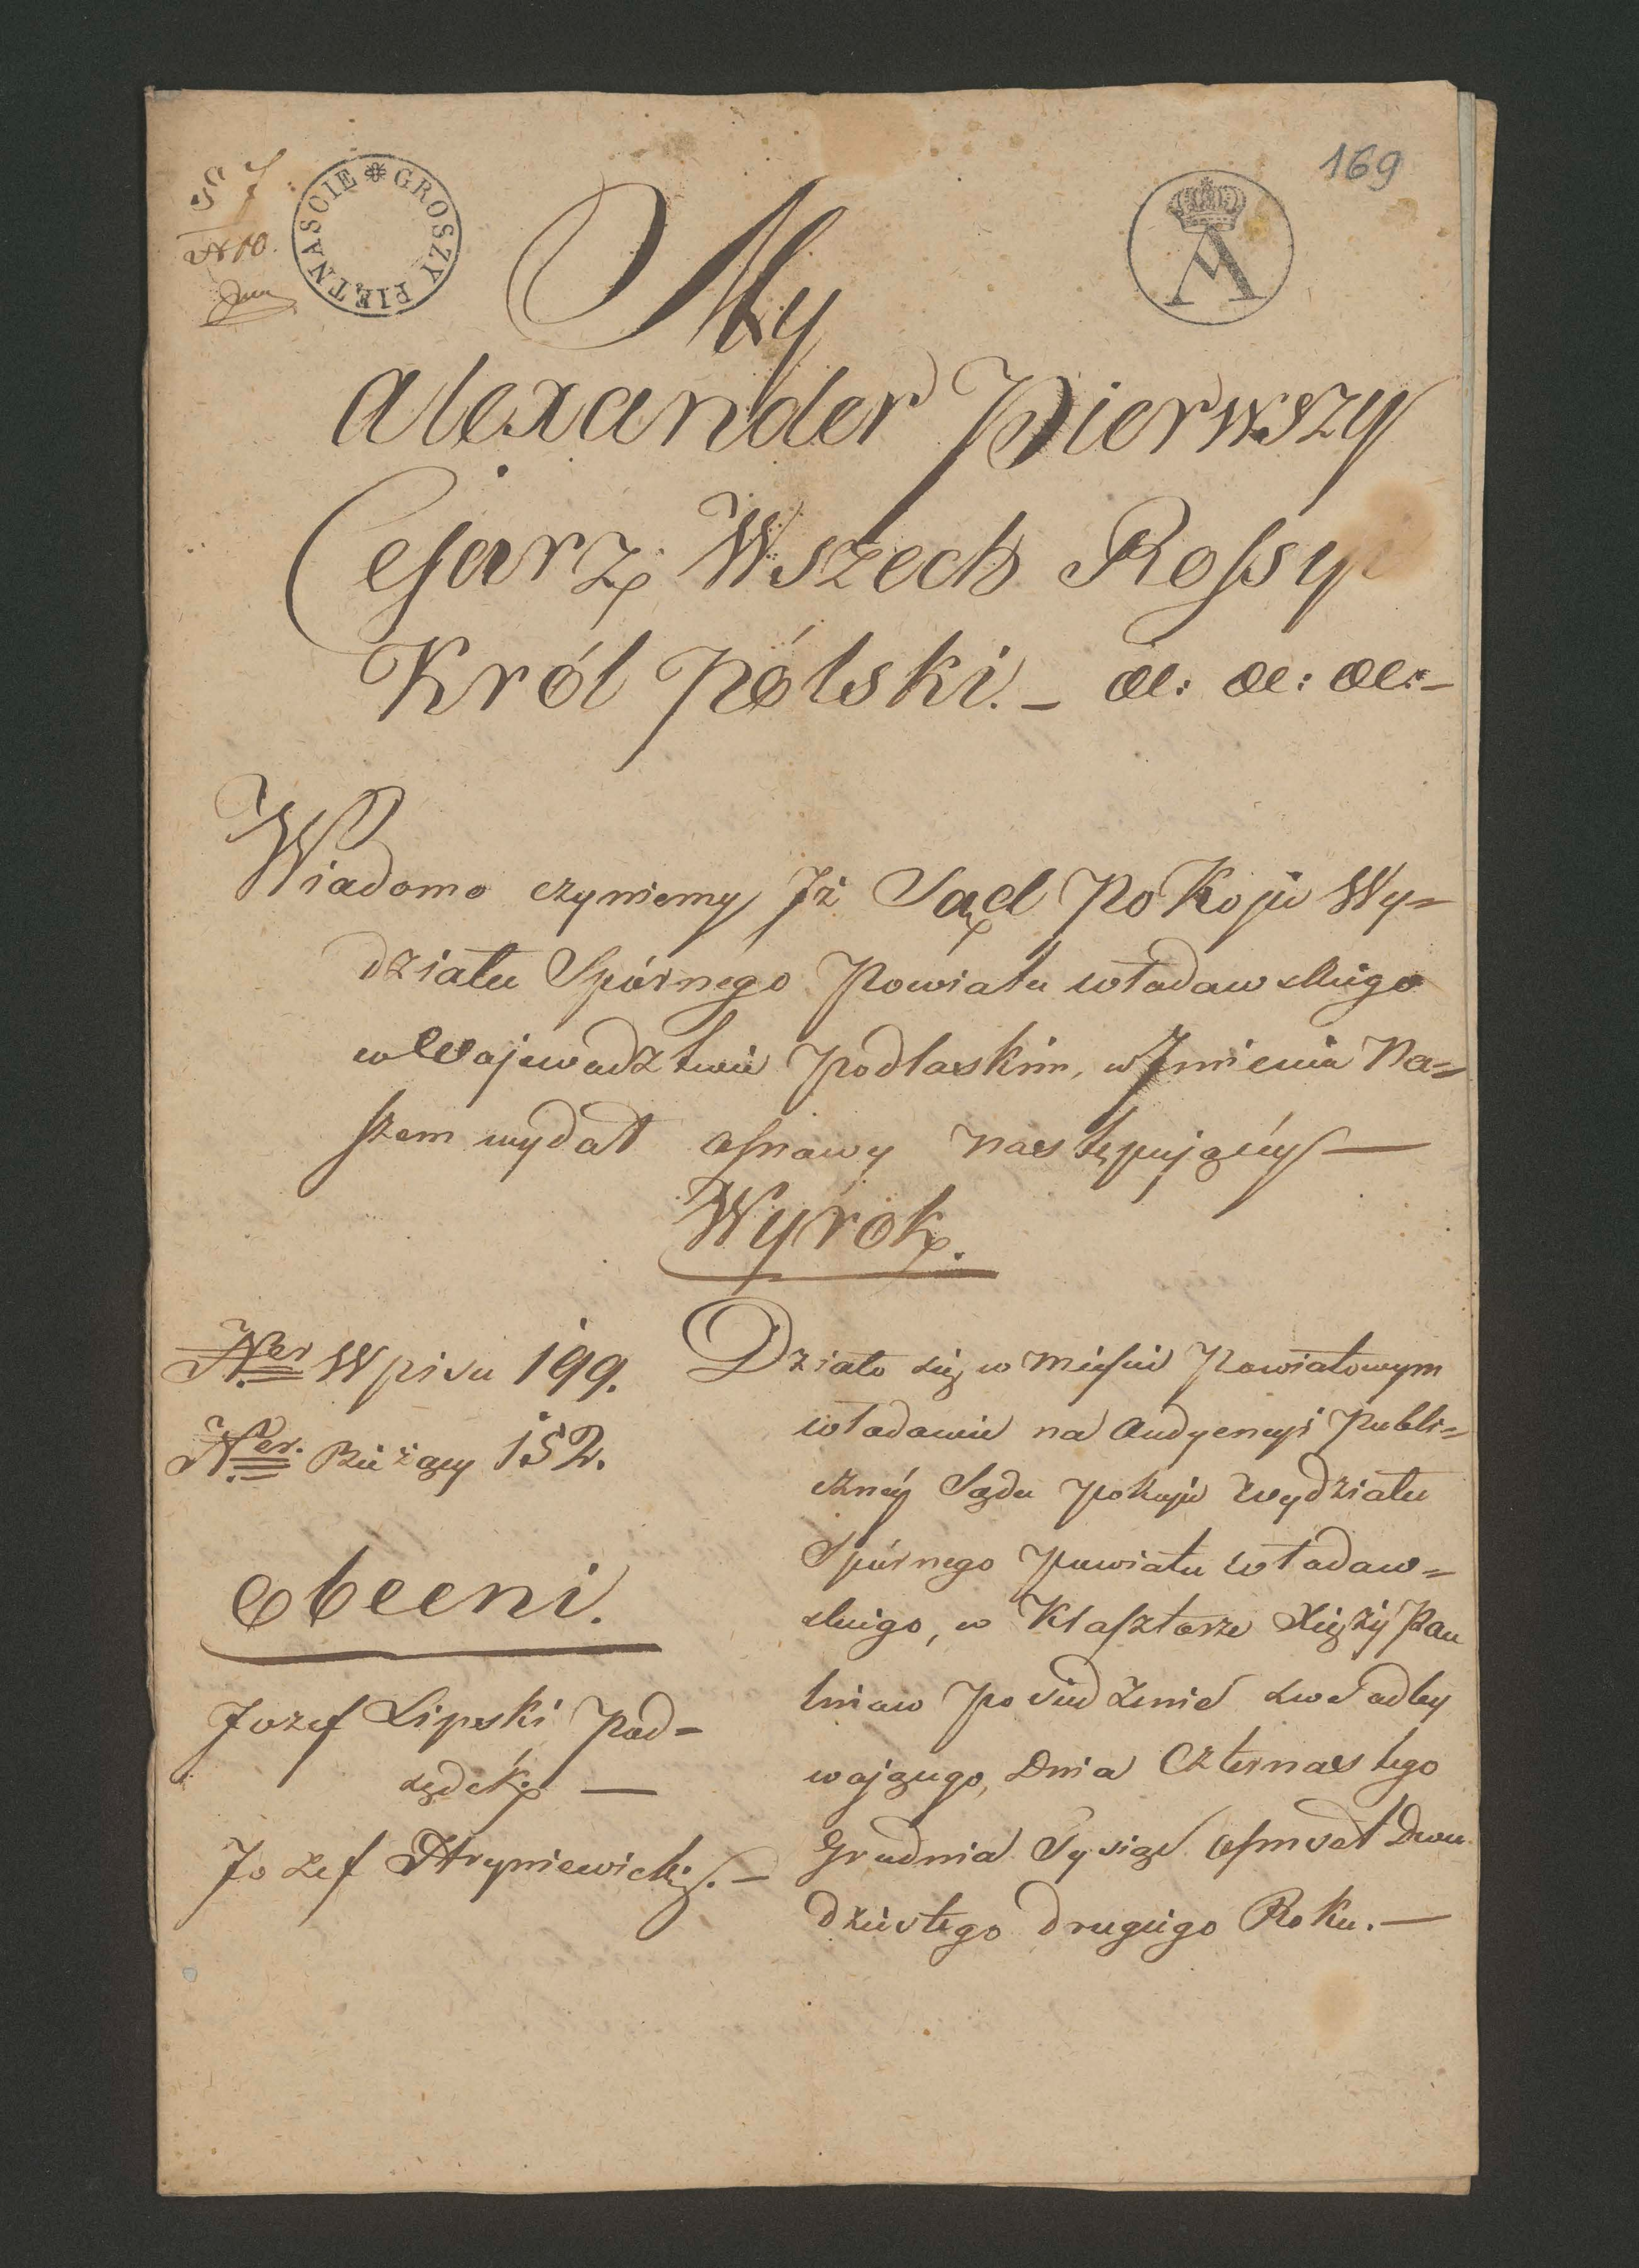 169
GROSZY PIĘTNASCIE
A
№ 10.
My
Alexander Pierwszy
Cesarz Wszech Rossyi
Król Pólski. – &: &: &: –
Wiadomo czyniemy Iż Sąd Pokoju Wy=
działu Spórnego Powiatu Włodawskiego
w Wojewodztwie Podlaskim, w Imieniu Na=
szem wydał osnowy następującéy —
Wyrok.
Ner Wpisu 199.
Ner. Bieżący 152.
Obecni.
Jozef Lipski Pod=
sędek —
Jozef Hryniewicki. —
Działo się w mieście Powiatowym
Włodawie na Audyencyi Publi=
cznéy Sądu Pokoju Wydziału
Spórnego Powiatu Włodaw=
skiego, w Klasztorze Xięży Pau
linow Posiedzenie swe odby
waiącego, Dnia Czternastego
Grudnia Tysiąc Osmset Dwu
dziestego drugiego Roku. —